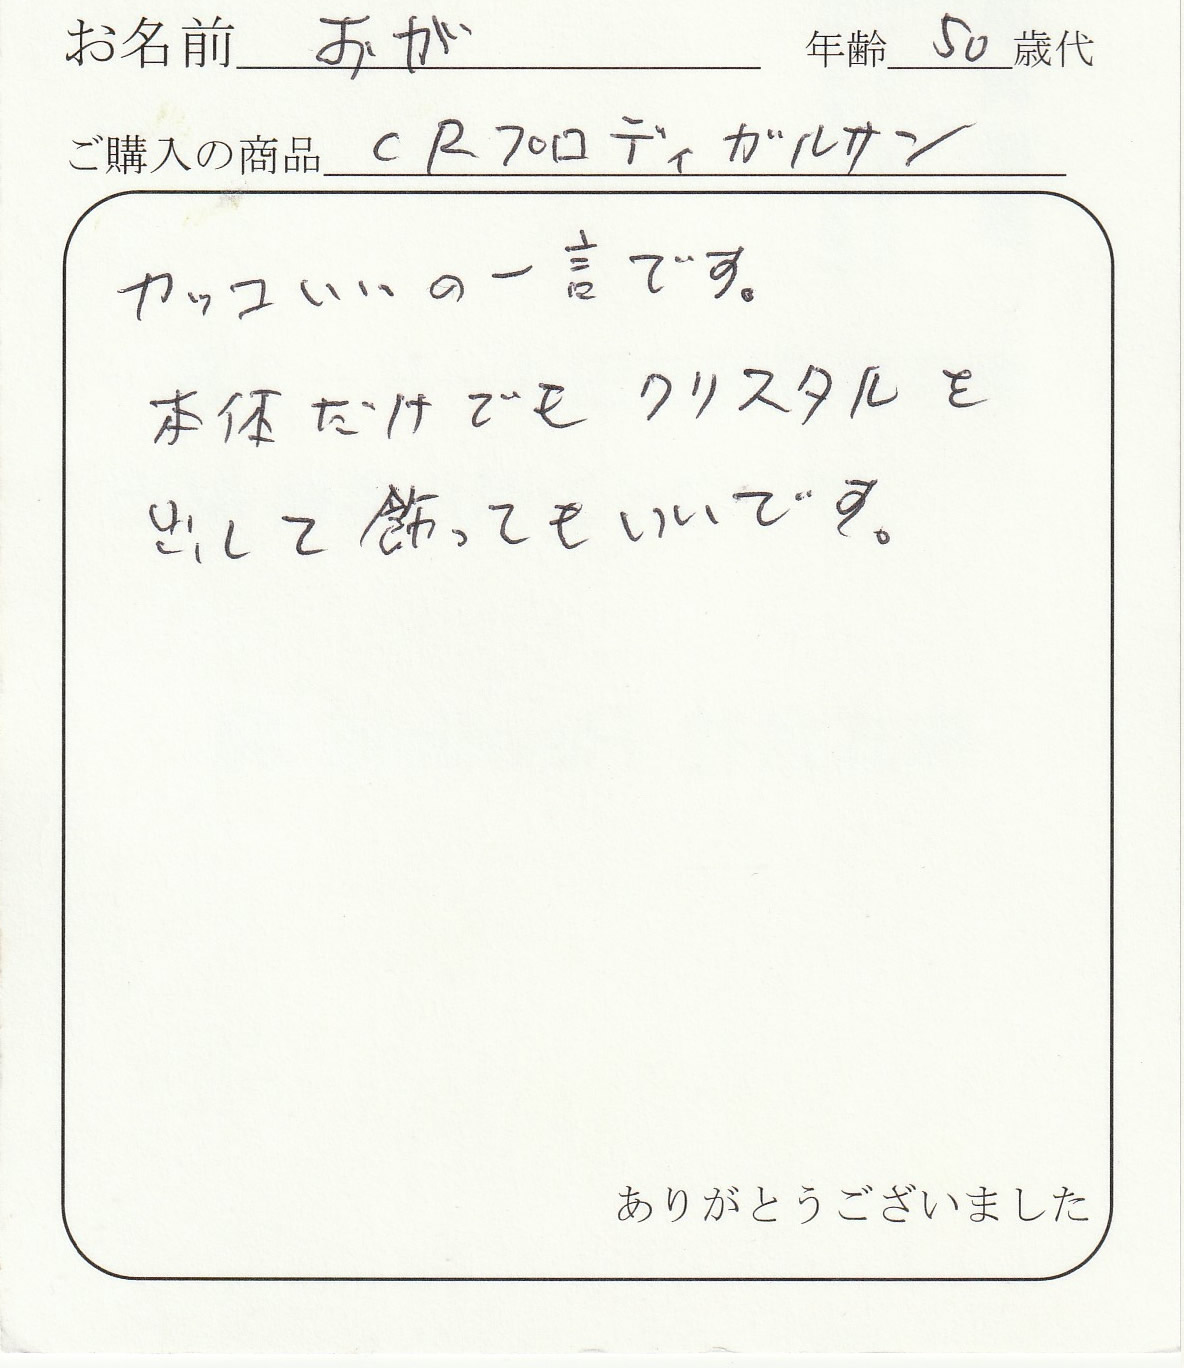 お名前 おが 年齢 50 歳代
ご購入の商品 CRプロディガルサン
カッコいいの一言です。
本体だけでもクリスタルを
出して飾ってもいいです。
ありがとうございました